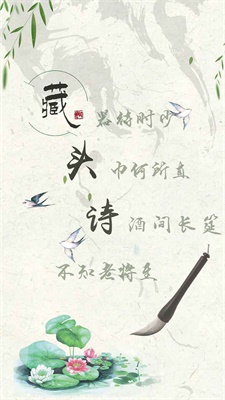 藏器待时
头巾何所直
诗酒间长筵
不知老将至